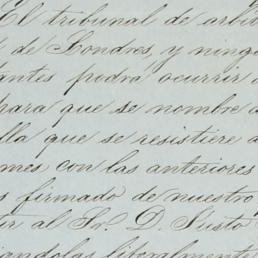 El tribunal de arbi
de Londres, y ningu
antes podra ocurrir
para que se nombre
lla que se resistiere
mes con las anteriores
firmado de nuestro
ir al Sr. D. Justo
iandolas liberalmente